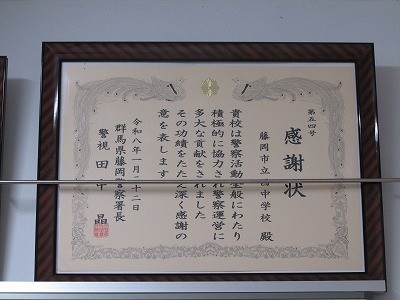 第五四号
感謝状
藤岡市立 中学校 殿
貴校は警察活動全般にわたり
積極的に協力され警察運営に
多大な貢献をされました
その功績をたたえ深く感謝の
意を表します
令和八年一月 十二日
群馬県藤岡警察署長
警視 田中 晶